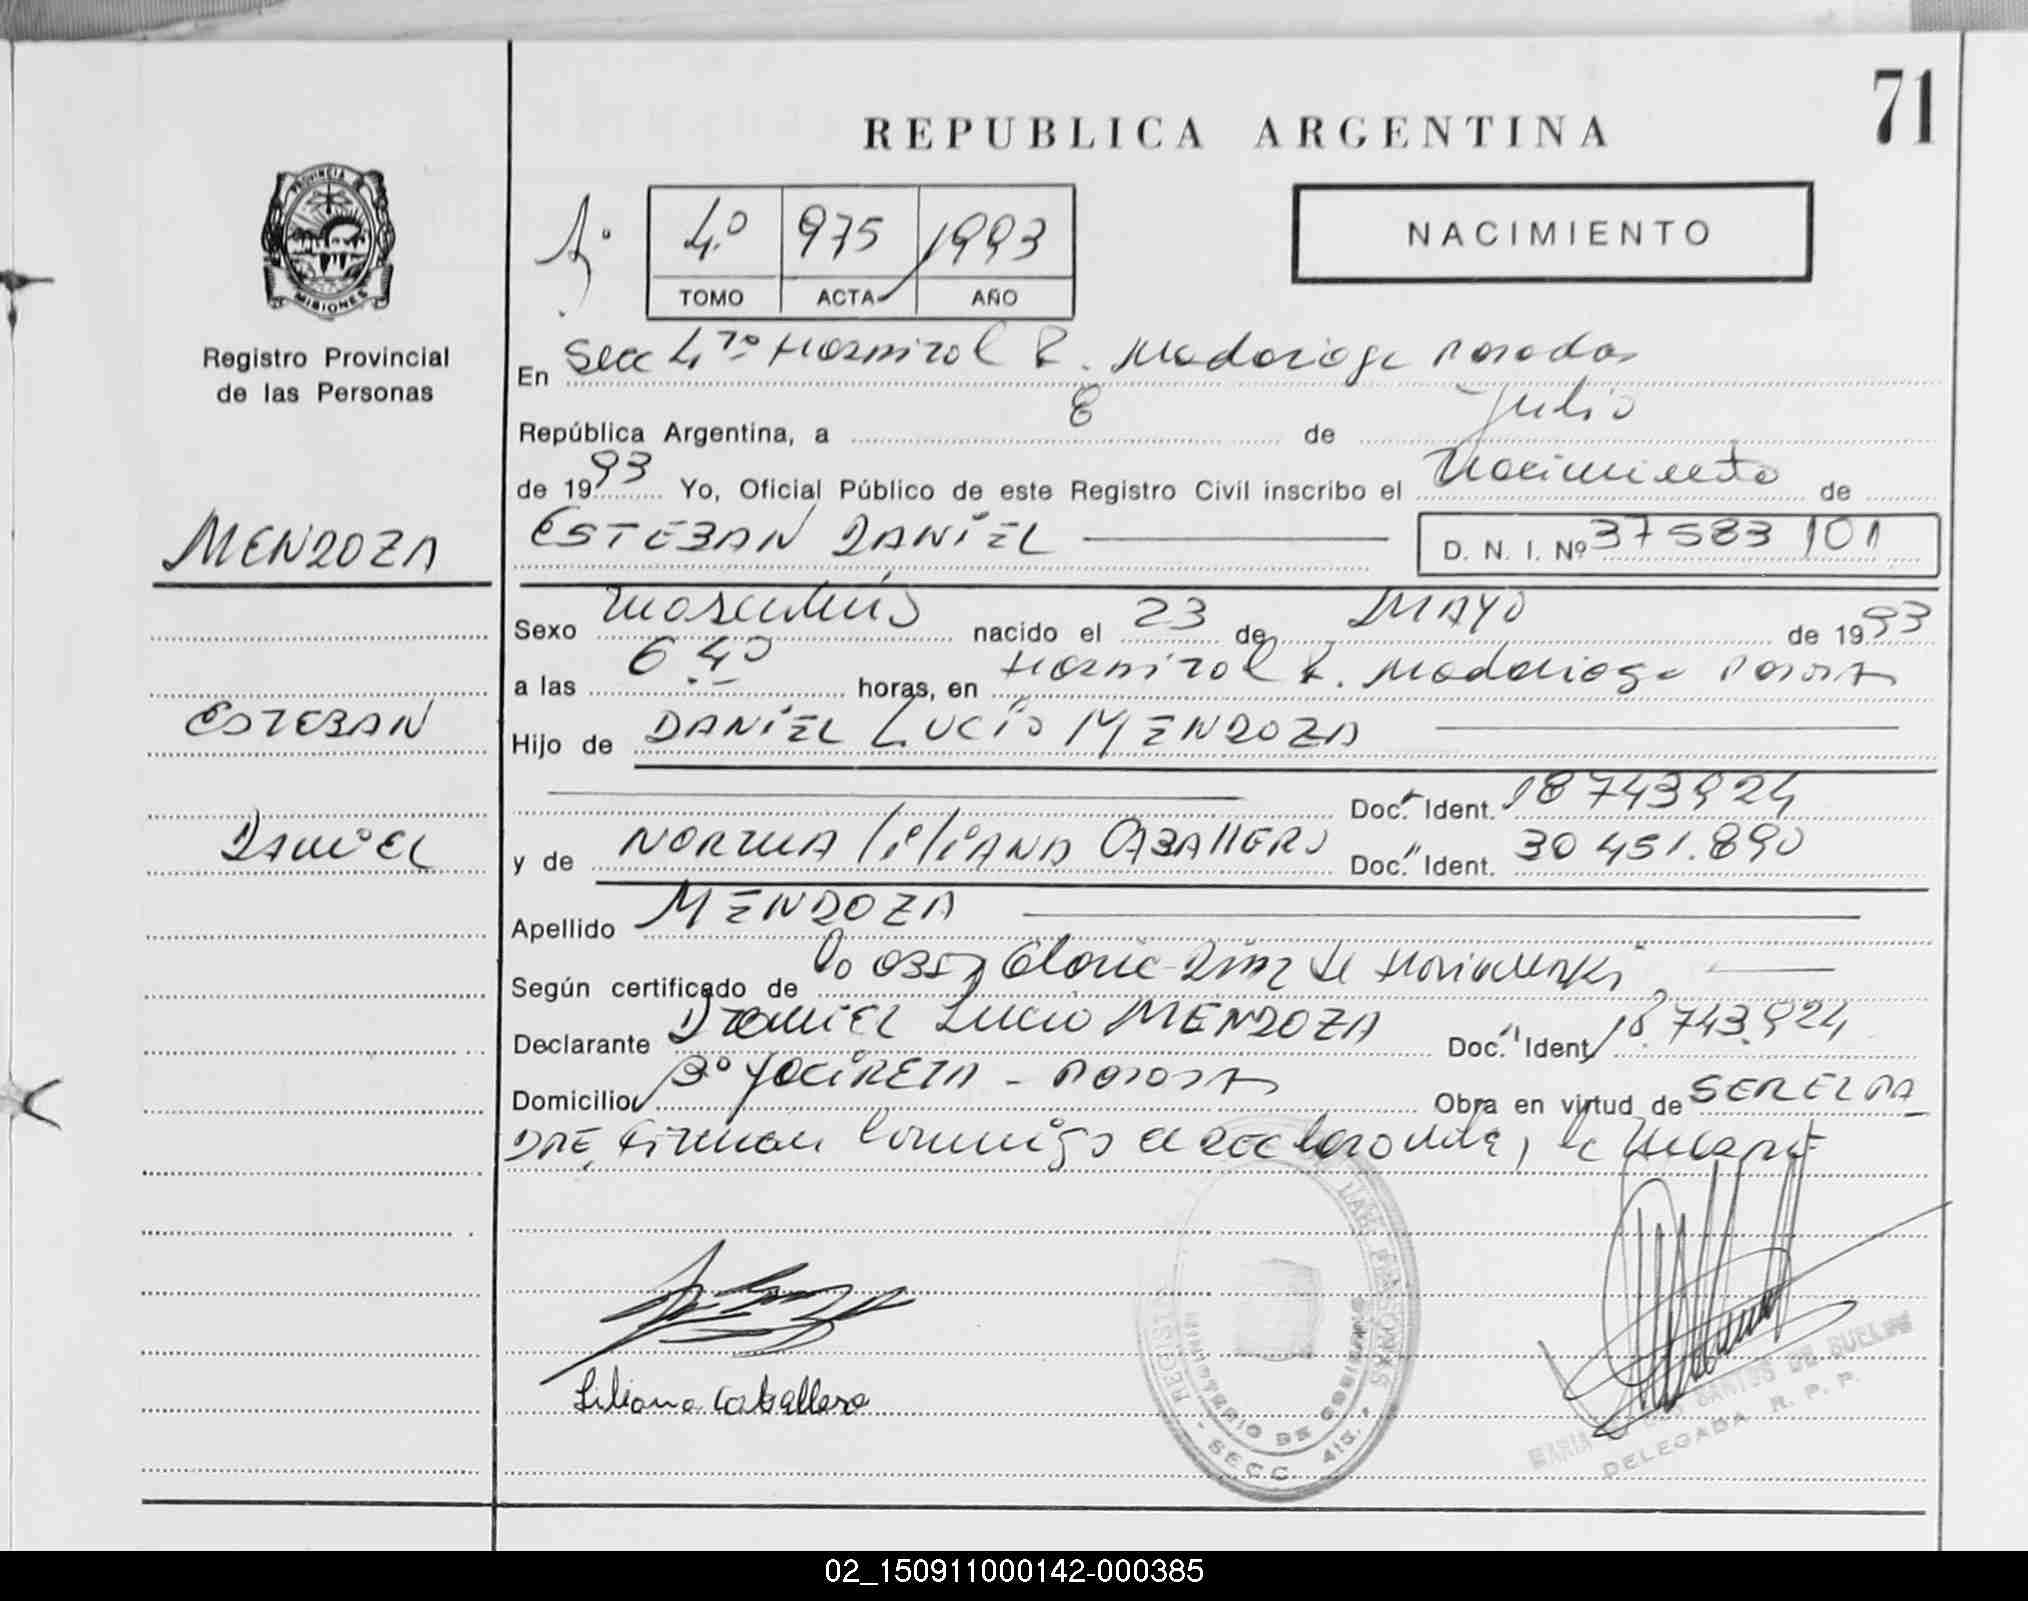 71
REPUBLICA ARGENTINA
PROVINCIA DE
MISIONES
Registro Provincial
de las Personas
4º 975 1993
TOMO ACTA AÑO
NACIMIENTO
En Secc 4ta Hospital R. Madariaga Posadas
República Argentina, a 8 de Julio
de 1993 Yo, Oficial Público de este Registro Civil inscribo el Nacimiento de
MENDOZA
ESTEBAN DANIEL D. N. I. Nº 37583101
Sexo masculino nacido el 23 de MAYO de 1993
a las 6 40 horas, en Hospital R. Madariaga Posadas
ESTEBAN
Hijo de DANIEL LUCIO MENDOZA
Doc. Ident. 18743924
DANIEL
y de NORMA LILIANA CABALLERO Doc. Ident. 30451.890
Apellido MENDOZA
Según certificado de
Declarante DANIEL Lucio MENDOZA Doc. Ident 18.743.924
Domicilio Bº YACIRETA - Posadas Obra en virtud de SER EL PA
DRE, Firman conmigo el declarante, la Madre
Liliana Caballero
MINISTERIO DE GOBIERNO
- SECC. 4ta. -
DE SUELDO
DELEGADA R. P. P.
02_150911000142-000385